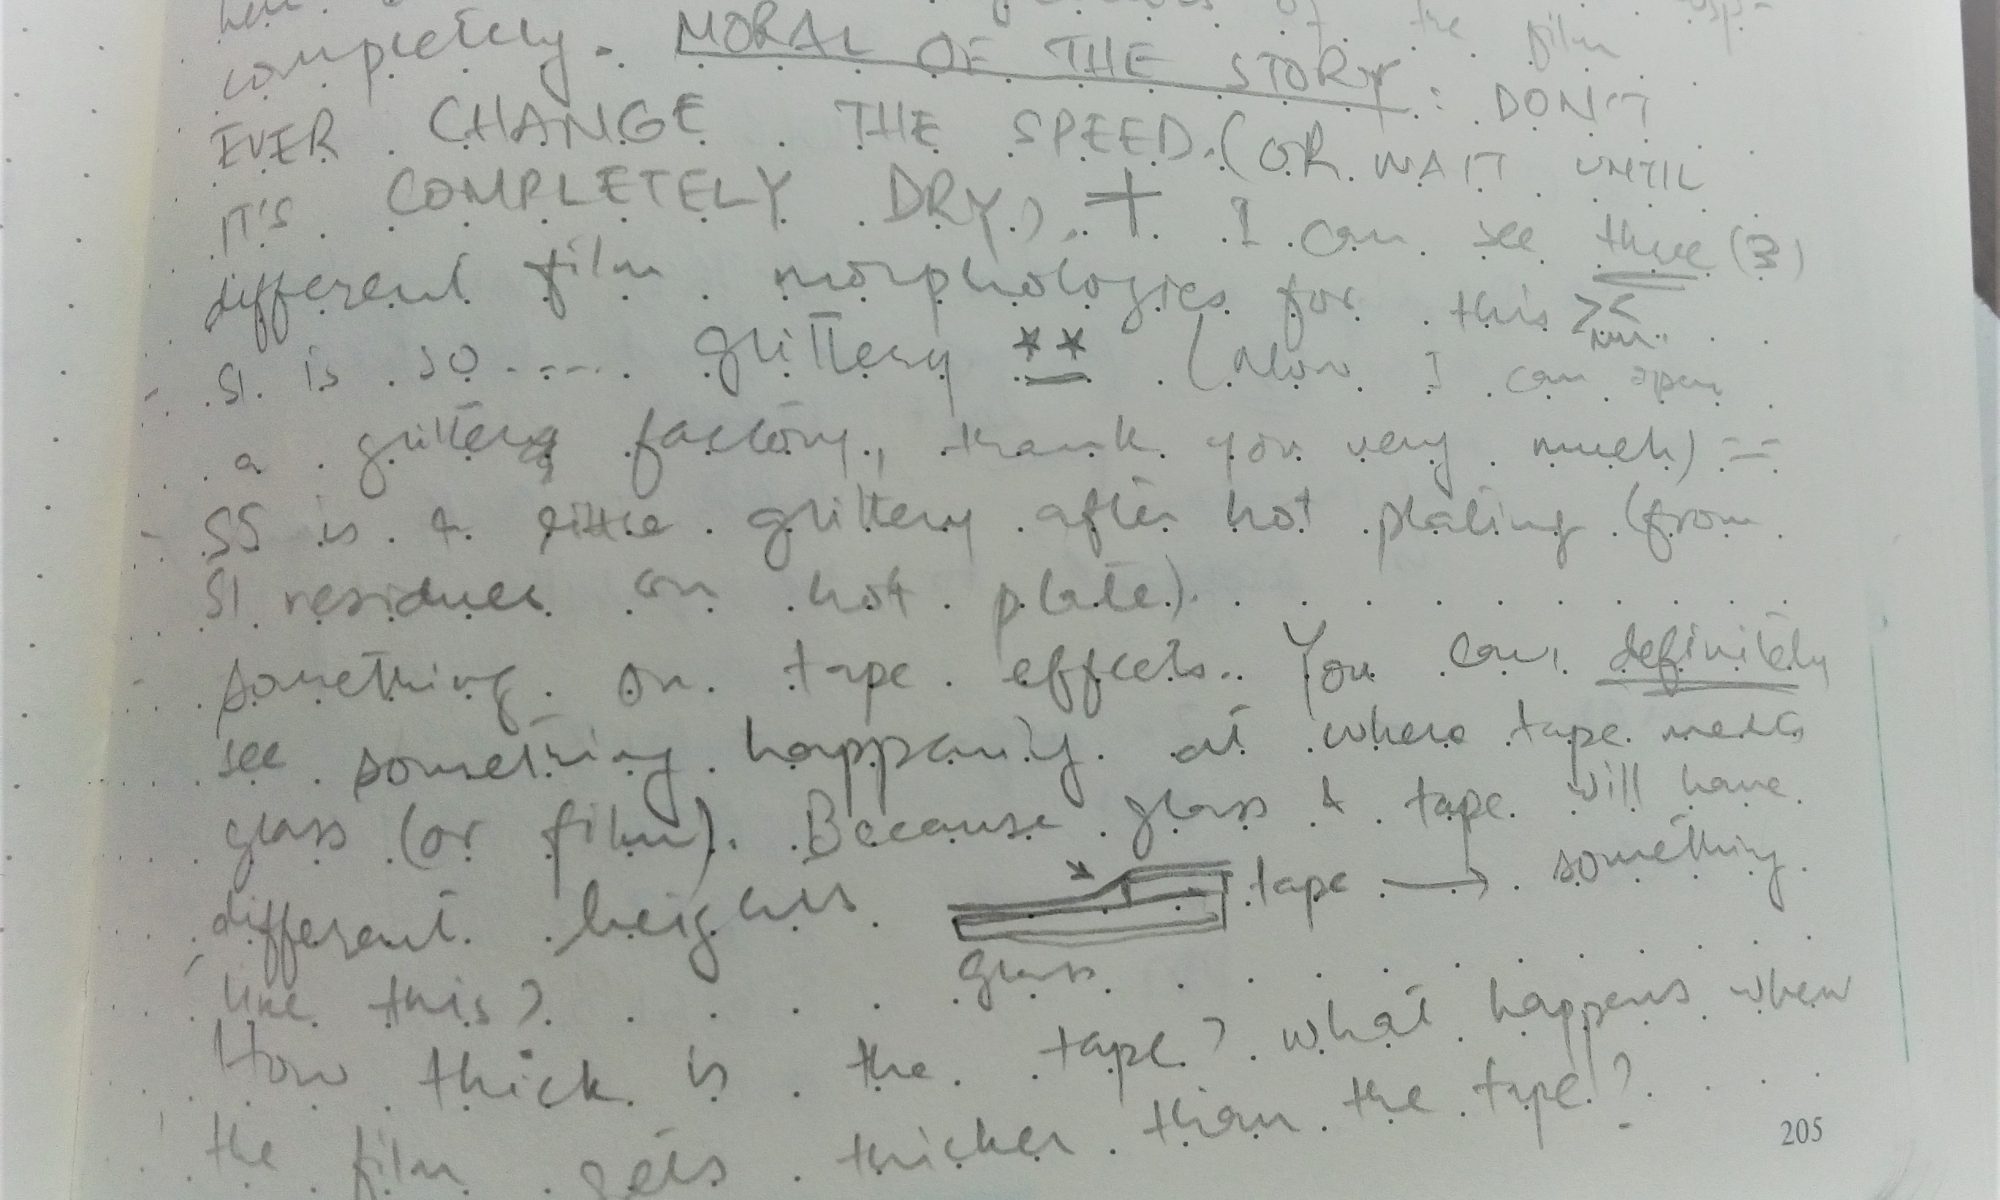 of the film
completely. MORAL OF THE STORY: DON'T
EVER CHANGE THE SPEED. (OR WAIT UNTIL
IT'S COMPLETELY DRY). + I can see three (3)
different film morphologies for this ><
- S1 is so ..... glittery ** (Now I can open
a glittery factory, thank you very much) --
- S5 is a little glittery after hot plating (from
S1 residues on hot plate).
- something on tape effects. You can definitely
see something happening at where tape meets
glass (or film). Because glass & tape will have
different heights. tape → something
glass
like this?
How thick is the tape? What happens when
the film gets thicker than the tape?
205